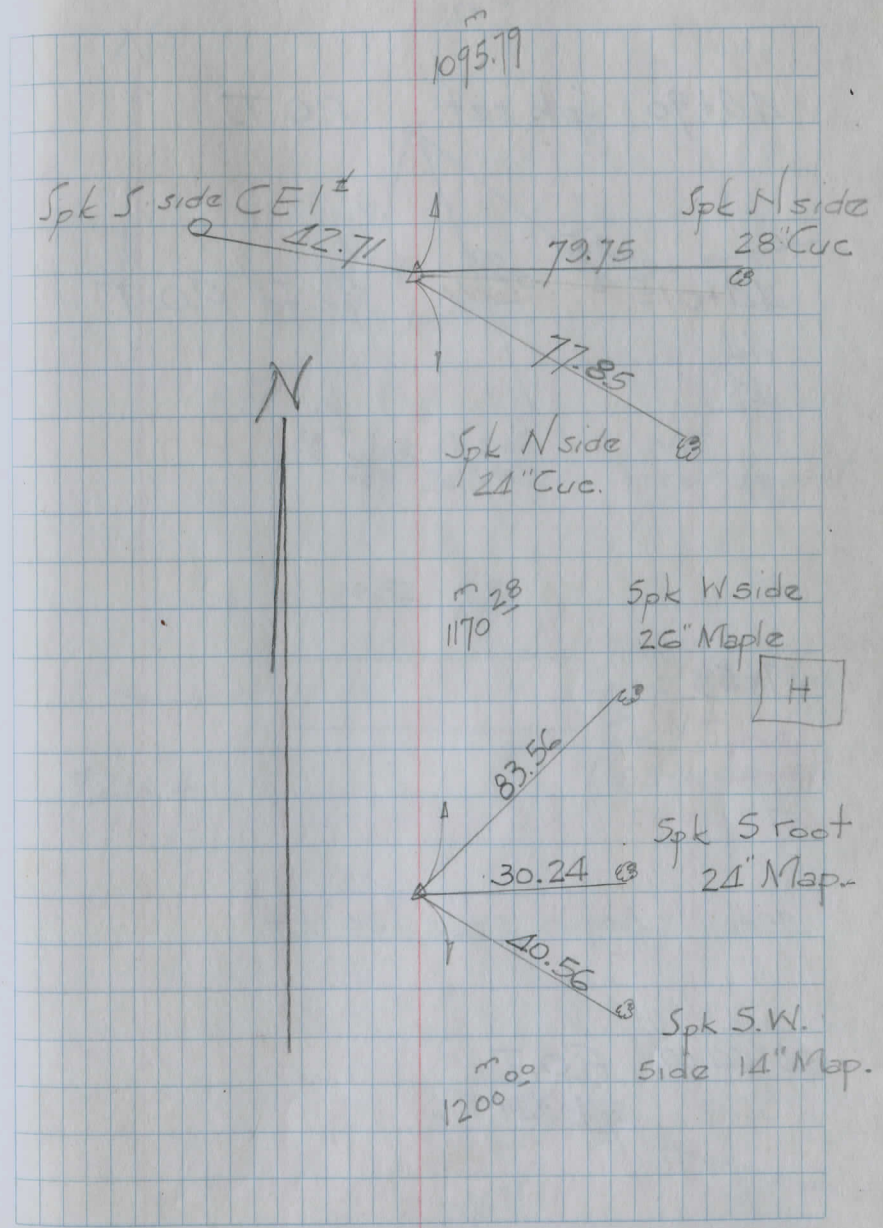 m
1095.79
Spk S. side CEI #
42.71
Spk N side
28" Cuc
79.75
77.85
Spk N side
24" Cuc.
N
m
1170 28
Spk W side
26" Maple
H
83.56
Spk S root
24" Map.
30.24
40.56
Spk S.W.
side 14" Map.
m
1200 00